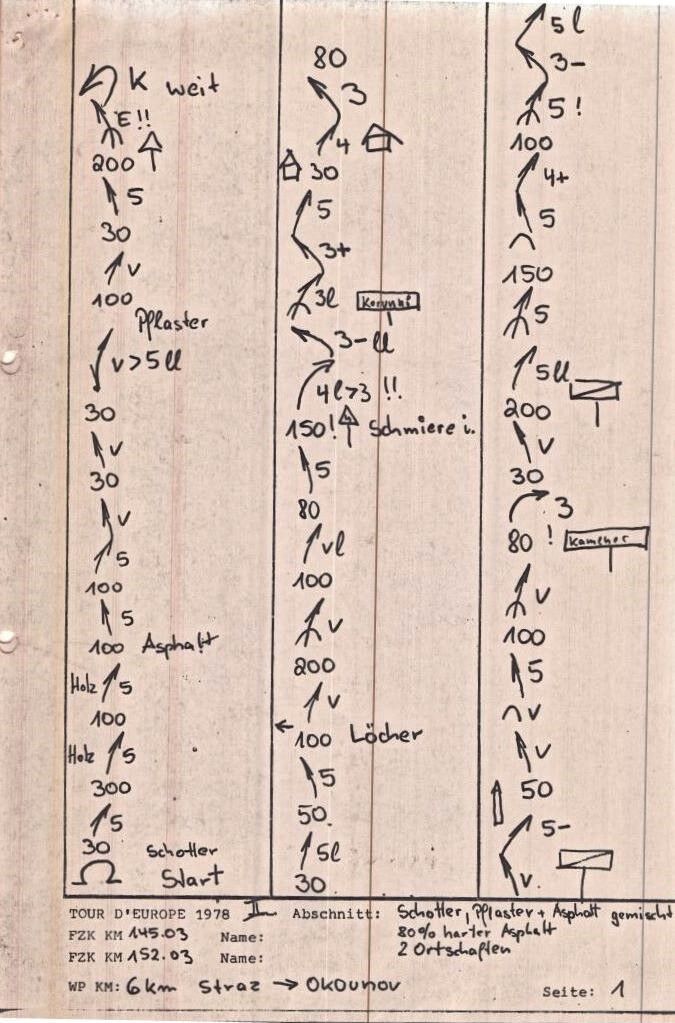 K weit
E!!
200
5
30
v
100
Pflaster
v>5ll
30
v
30
v
5
100
5
100 Asphalt
Holz 5
100
Holz 5
300
5
30 Schotter
Start
80
3
4
30
5
3+
3l Korunni
3-ll
4l>3 !!
150! Schmiere i.
5
80
vl
100
v
200
v
100 Löcher
5
50
5l
30
5l
3-
5!
100
4+
5
150
5
5ll
200
v
30
3
80 ! Kamener
v
100
5
v
v
50
5-
v
TOUR D'EUROPE 1978 II Abschnitt: Schotter, Pflaster + Asphalt gemischt
80% harter Asphalt
2 Ortschaften
FZK KM 145.03 Name:
FZK KM 152.03 Name:
WP KM: 6km Straz → Okounov
Seite: 1